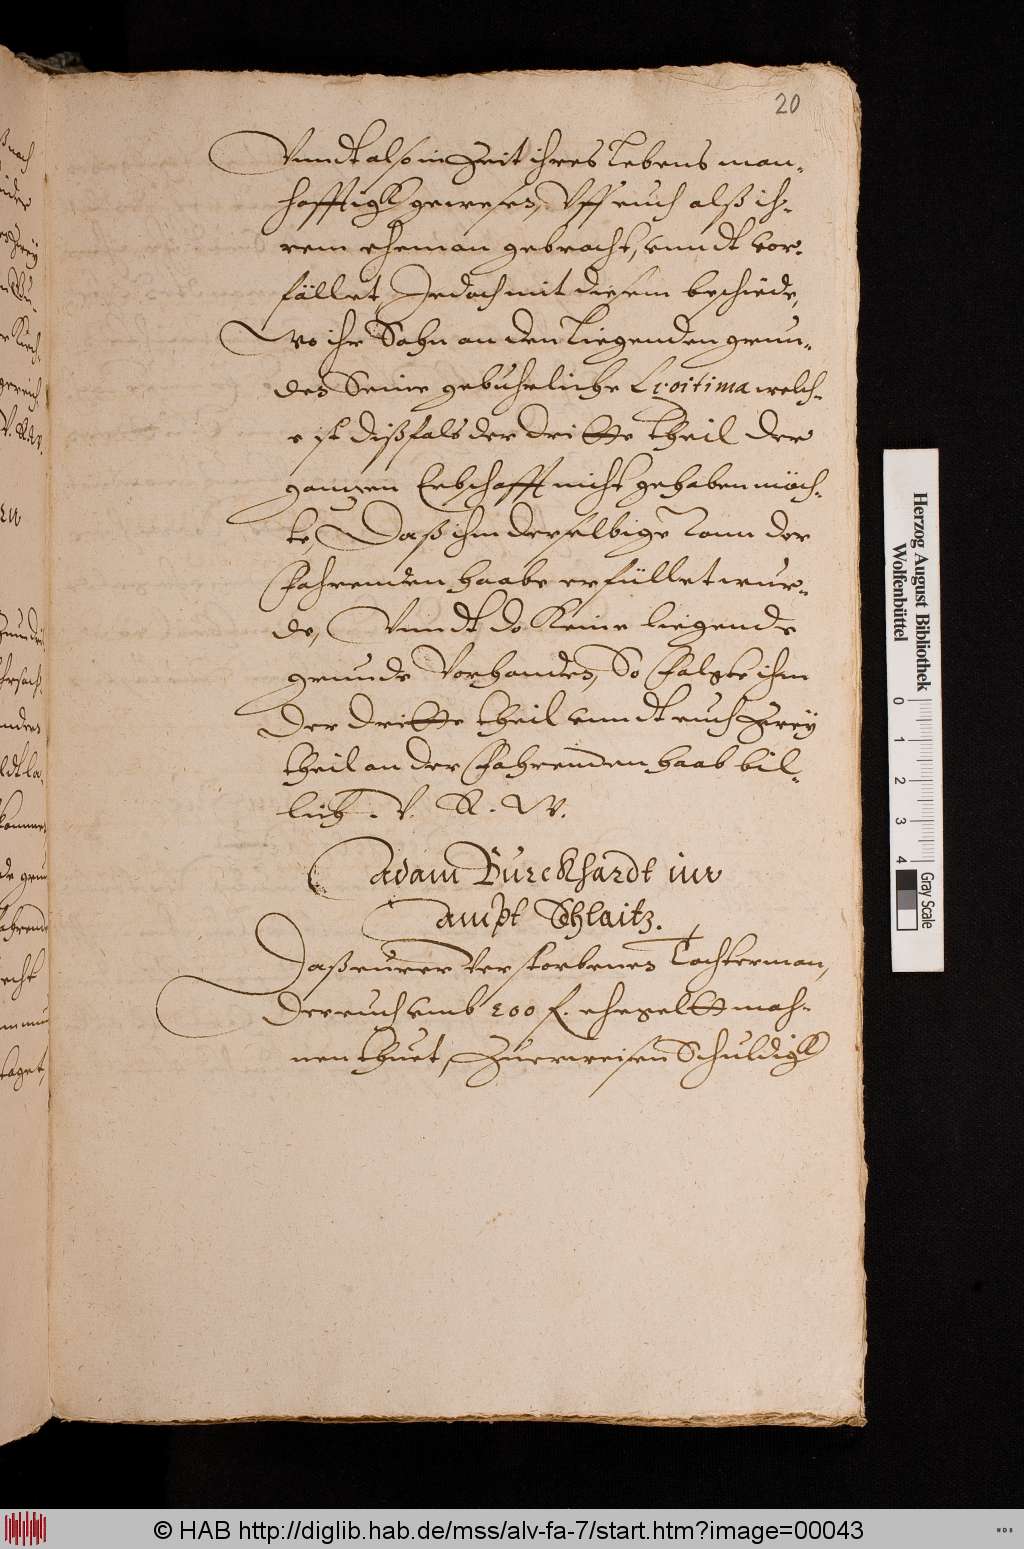 20
Vnndt also in Zeit ihres Lebens man-
hafftigk gewesen, Vff euch alß ih-
rem eheman gebracht, vnndt vor-
fället, Jedoch mit diesem beschiede,
Wo ihr Sohn an den Liegenden grun-
den Seine gebuhrliche Legitima welch-
e ist dißfals der dritte theil der
gantzen Erbschafft nicht gehaben möch-
te, Daß ihm derselbige von der
Fahrenden haabe erfüllet wur-
de, Vnndt do Keine liegende
grunde Vorhanden, So folgte ihm
Der dritte theil vnndt euch Zwey
theil an der Fahrenden haab bil-
lich. V. R. W.
Adam Burckhardt im
ampt Schlaitz.
Daß eurer Verstorbenen Tochterman,
Der euch vmb 200 f. ehegeltt mah-
nen thuet, Zuerweisen Schuldigk
Herzog August Bibliothek
Wolfenbüttel
0 1 2 3 4
Gray Scale
© HAB http://diglib.hab.de/mss/alv-fa-7/start.htm?image=00043